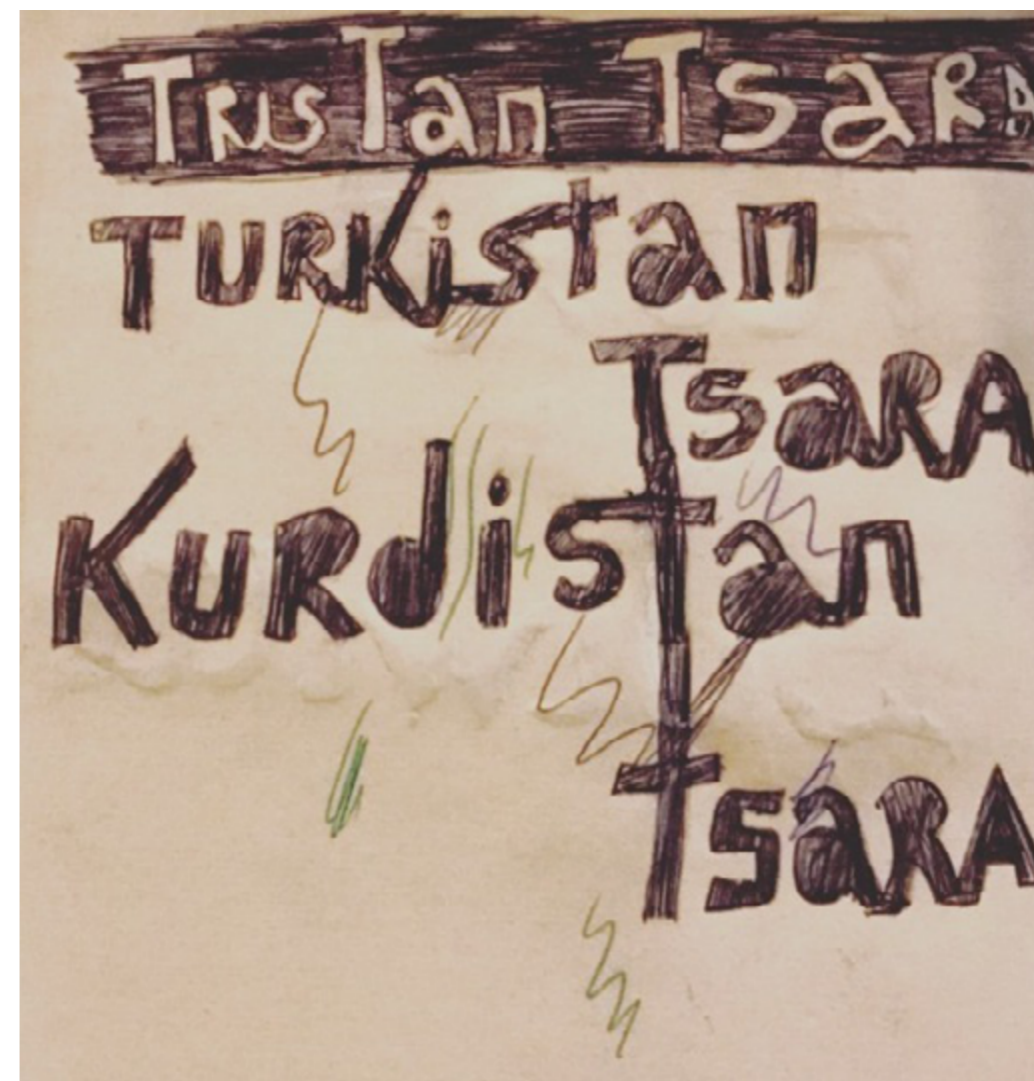 TRisTan TsaRa
TURKistan
TsaRA
KURdisTan
TsaRA